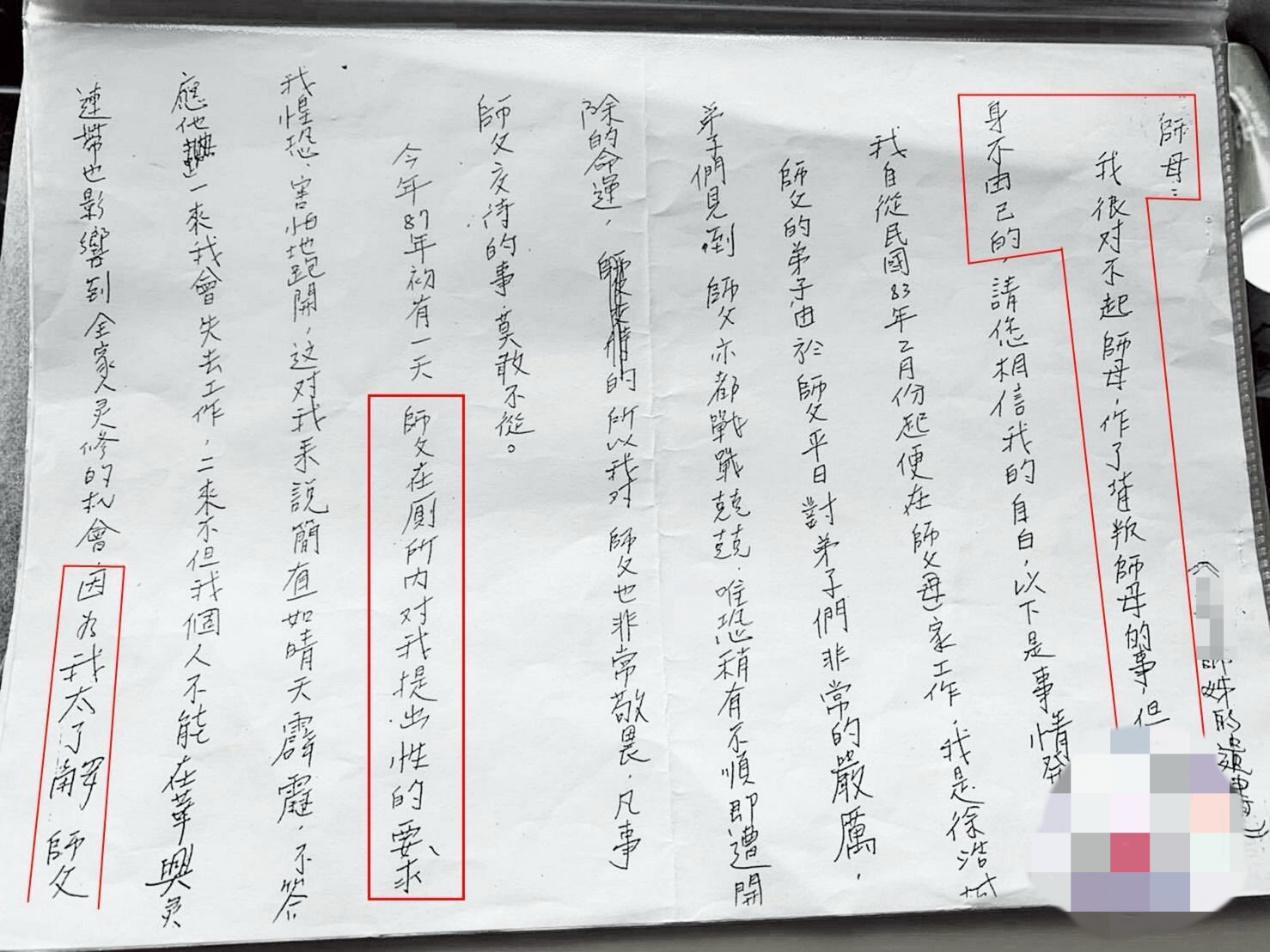 師姊的遺書》
師母：
我很对不起師母，作了背叛師母的事，但
身不由己的，請您相信我的自白，以下是事情發
我自從民國83年2月份起便在師父母家工作，我是徐浩
師父的弟子由於師父平日對弟子們非常的嚴厲，
弟子們見到 師父亦都戰戰兢兢，唯恐稍有不順即遭開
除的命運，的所以我对 師父也非常敬畏，凡事
師父交待的事，莫敢不從。
今年87年初有一天 師父在厠所內对我提出性的要求
我惶恐 害怕地跑開，这对我来說簡直如晴天霹靂，不答
應他一來我會失去工作，二來不但我個人不能在華興灵
連帶也影響到全家人灵修的机會，因為我太了解 師父